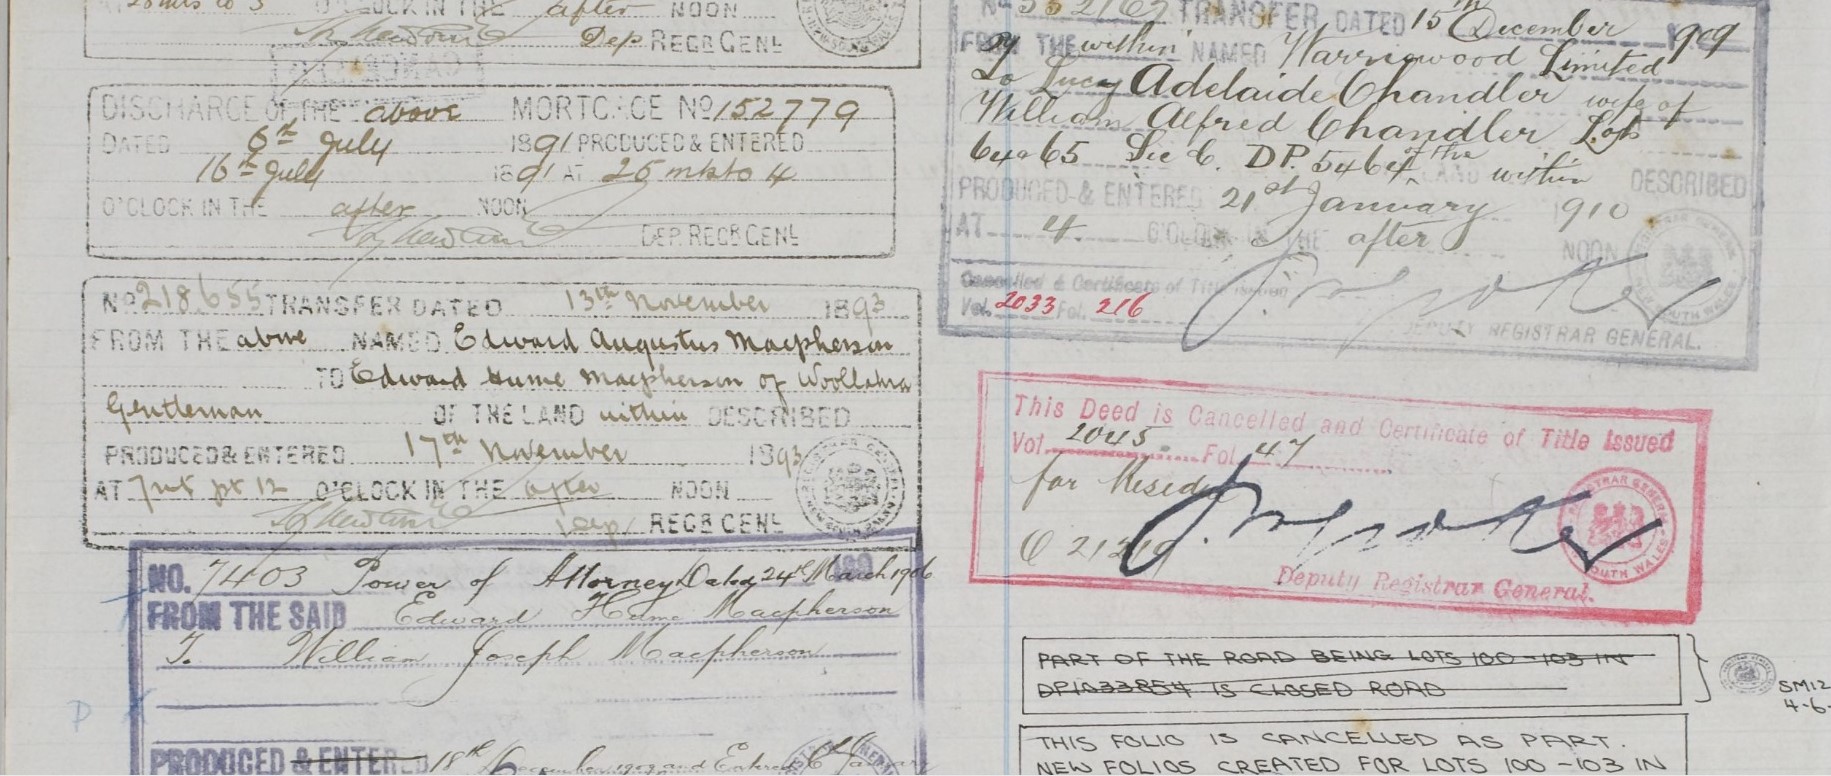 28 mts to 3 O'CLOCK IN THE after NOON
Dep REGR GENL
DISCHARGE OF THE above MORTGAGE NO 152779
DATED 6th July 1891 PRODUCED & ENTERED
16th July 1891 AT 25 mts to 4
O'CLOCK IN THE after NOON
DEP. REGR GENL
NO 218655 TRANSFER DATED 13th November 1893
FROM THE above NAMED Edward Augustus Macpherson
TO Edward Hume Macpherson of Woollahra
Gentleman OF THE LAND within DESCRIBED
PRODUCED & ENTERED 17th November 1893
AT 7 mts pt 12 O'CLOCK IN THE after NOON
Dep REGR GENL
NO. 7403 Power of Attorney Dated 24th March 1906
FROM THE SAID Edward Hume Macpherson
To William Joseph Macpherson
PRODUCED & ENTERED 18th December and Entered
P
TRANSFER DATED 15th December 1909
FROM THE within NAMED Warriewood Limited
To Lucy Adelaide Chandler wife of
William Alfred Chandler Lots
64 & 65 Sec C. DP. 5464 of the LAND within DESCRIBED
PRODUCED & ENTERED 21st January 1910
AT 4 O'CLOCK IN THE after NOON
Cancelled & Certificate of Title issued
Vol. 2033 Fol. 216
DEPUTY REGISTRAR GENERAL.
This Deed is Cancelled and Certificate of Title Issued
Vol. 2045 Fol. 47
for Residue
Deputy Registrar General.
PART OF THE ROAD BEING LOTS 100 - 103 IN
DP1033854 IS CLOSED ROAD
SM12
4-6-
THIS FOLIO IS CANCELLED AS PART.
NEW FOLIOS CREATED FOR LOTS 100 - 103 IN